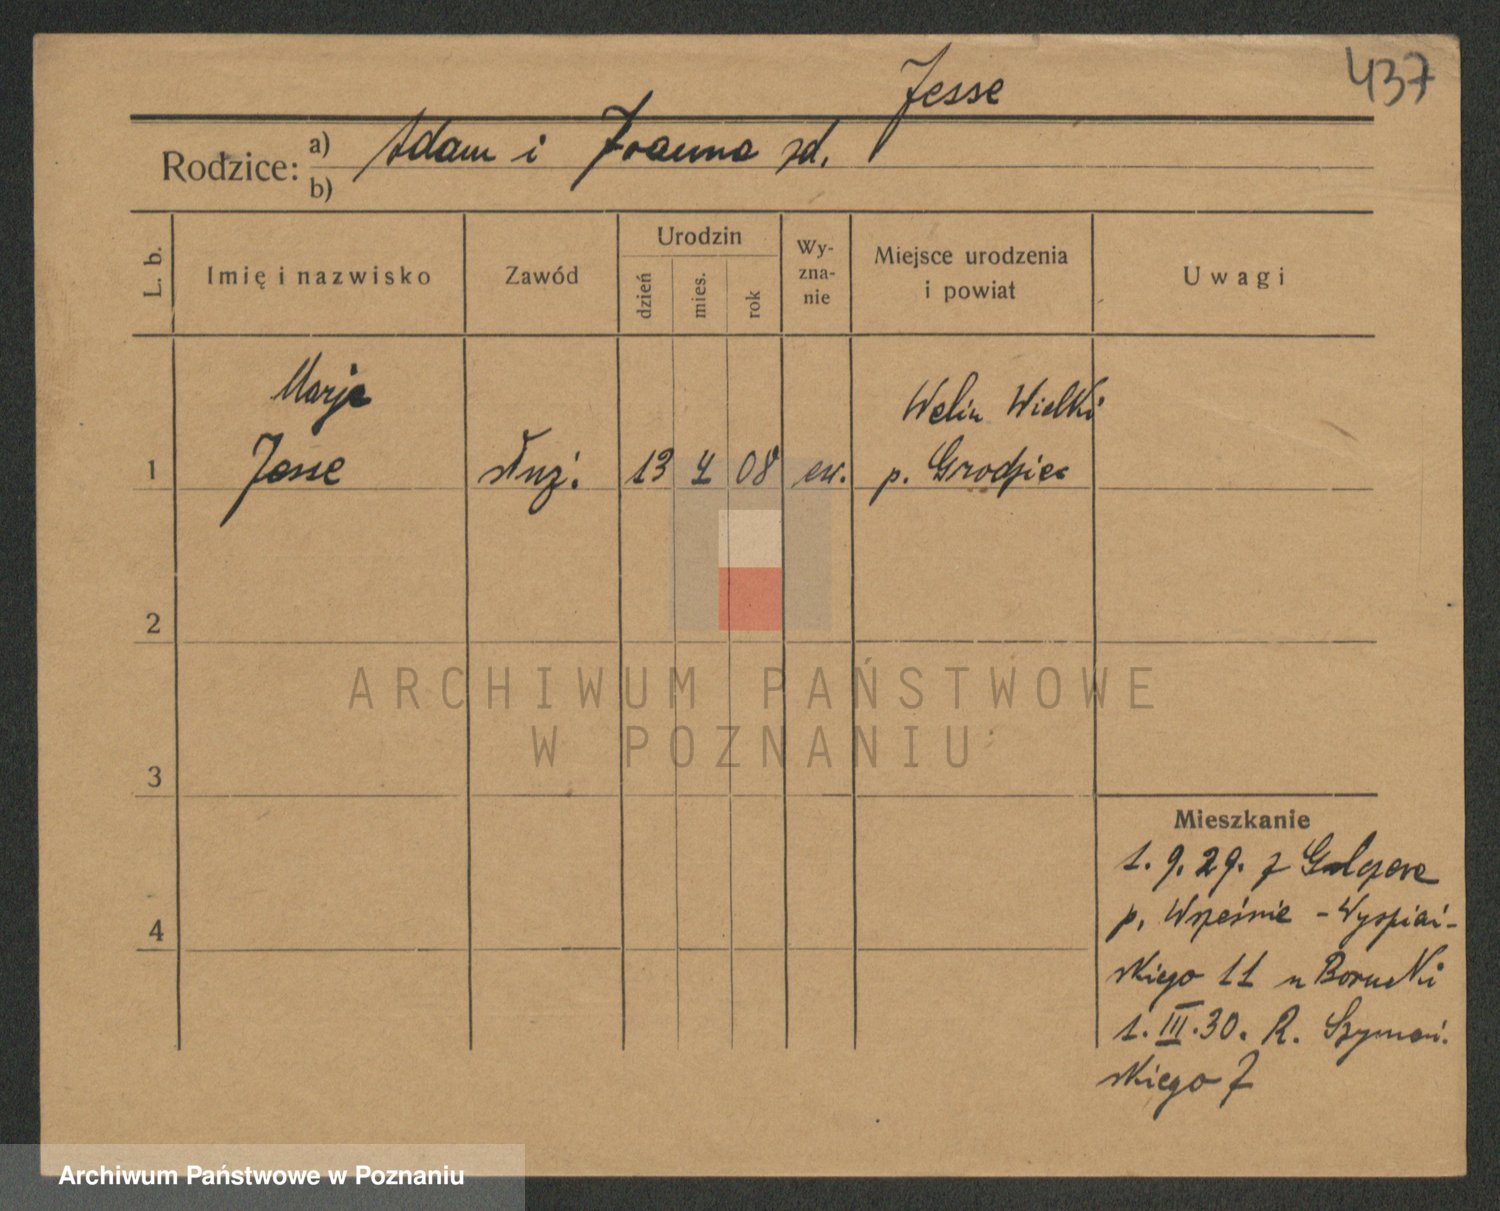 437
Jesse
Rodzice: a) Adam i Joanna zd.
b)
L. b.
Imię i nazwisko
Zawód
Urodzin
dzień
mies.
rok
Wy-
zna-
nie
Miejsce urodzenia
i powiat
Uwagi
Marja
Welin Wielki
1 Jesse służ. 13 4 08 ew. p. Grodziec
2
3
4
ARCHIWUM PAŃSTWOWE
W POZNANIU
Mieszkanie
1. 9. 29. z
p. Września - Wyspiań-
skiego 11 u Borucki
1. III. 30. R. Szymań.
skiego 7
Archiwum Państwowe w Poznaniu